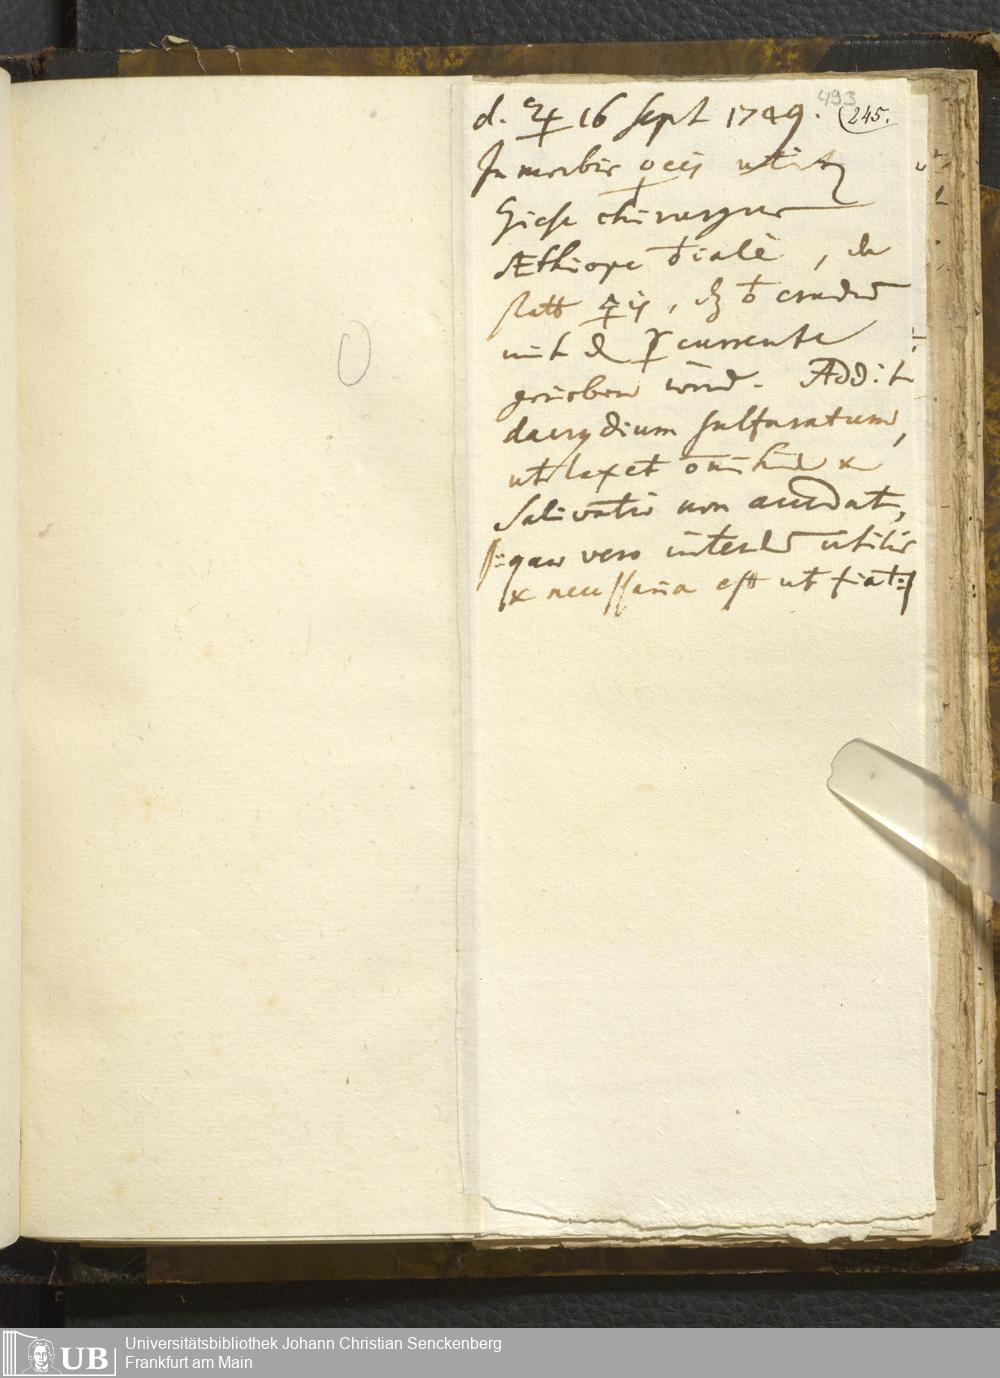 493
d. ♃ 16 Sept 1749. (245.
In morbis ♀eis utit
Giese chirurgus
Æthiope ♁iale, da
statt 🜍is, dz ♁ crudũ
mit d ☿ currente
gerieben wird. Addit
dacrydium sulfuratum,
ut laxet &
Salivatio non accedat,
quae vero interdũ utilis
& necessaria est ut fiat
Universitätsbibliothek Johann Christian Senckenberg
Frankfurt am Main
UB